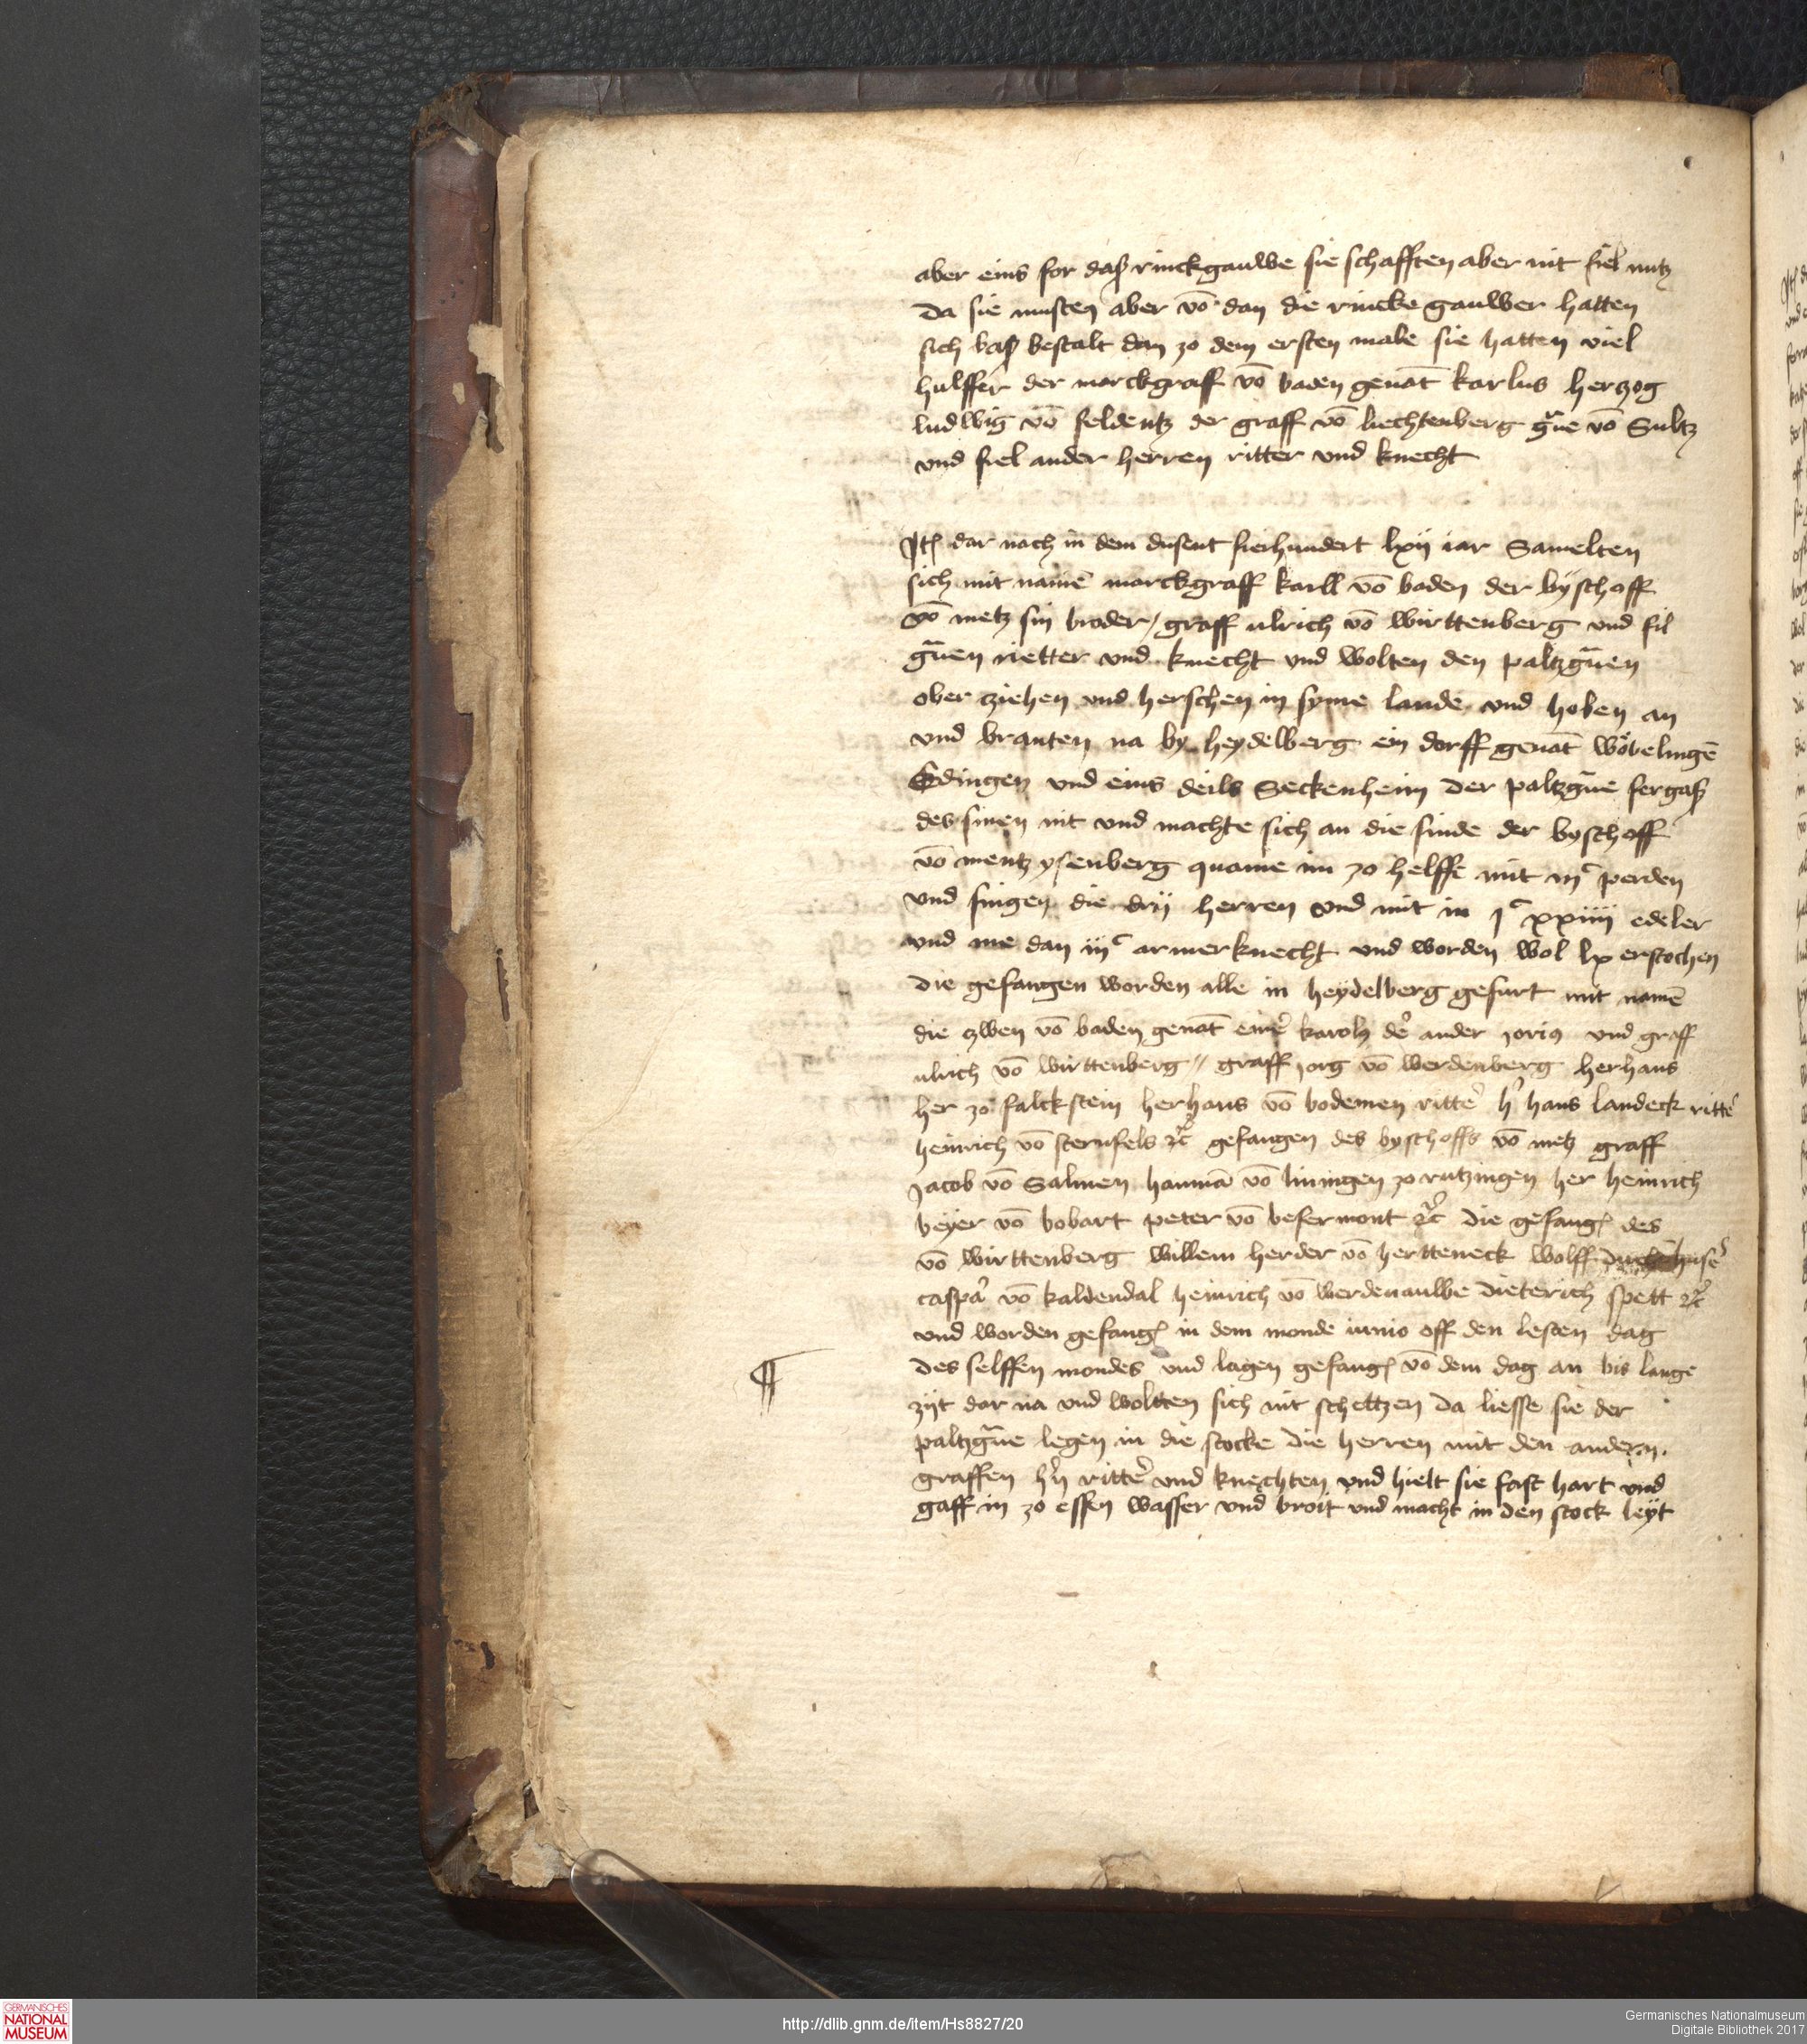 aber eins for daß rinckgauwe sie schafften aber nit fiel nutz
Da sie musten aber vō dan die rincke gauwer hatten
sich baß bestalt dan zo dem ersten male sie hatten viel
hulffer der marckgraff vō baden genāt karlus herzog
ludwig vō feldentz der graff vō liechtenberg gāue vō Sultz
vnd fiel ander herren ritter vnd knecht
Itꝭ dar nach in dem dusent fierhundert lxij iar Samelten
sich mit namē marckgraff karll vō baden der byschoff
vō metz sin broder / graff ulrich vō wirttenberg vnd fil
gāuen rietter vnd knecht vnd wolten den paltzgāuen
ober ziehen vnd herschen in syme lande vnd hoben an
vnd branten na by heydelberg ein dorff genāt wöbelingē
Edingen vnd eins deils Seckenheim Der paltzgāue fergaß
des sinen nit vnd machte sich an die finde der byschoff
vō mentz ysenberg quame im zo helffe mit iijᶜ perden
vnd fingen die drij herren vnd mit in jᶜ xxiiij edeler
vnd me dan iijᶜ armer knecht vnd worden wol lx erstochen
Die gefangen worden alle in heydelberg gefurt mit namē
die zwen vō baden genāt einer karolꝰ der ander joriꝰ vnd graff
ulrich vō wirttenberg // graff jorg vō werdenberg her hans
her zo falckstein her hans vō bodemen ritter hꝰ hans landeck ritter
heinrich vō sternfels ꝛc̃ gefangen des byschoffs vō metz graff
Jacob vō Salmen hanmā vō liningen zo rutzingen her heinrich
beyer vō bobart peter vō befermont ꝛc̃ Die gefangꝭ des
vō wirttenberg willem herder vō hertteneck wolff
caspar vō kaldendal heinrich vō werdenauwe Dieterich spett ꝛc̃
vnd worden gefangꝭ in dem monde iunio off den lesten dag
Des selffen mondes vnd lagen gefangꝭ vō dem dag an bis lange
¶ zijt dar na vnd woltten sich nit schettzen Da liesse sie der
paltzgāue legen in die stocke Die herren mit den andern
graffen hꝰn ritter vnd knechten vnd hielt sie fast hart vnd
gaff in zo essen wasser vnd broit vnd macht in den stock leyt
GERMANISCHES NATIONAL MUSEUM
http://dlib.gnm.de/item/Hs8827/20
Germanisches Nationalmuseum
Digitale Bibliothek 2017